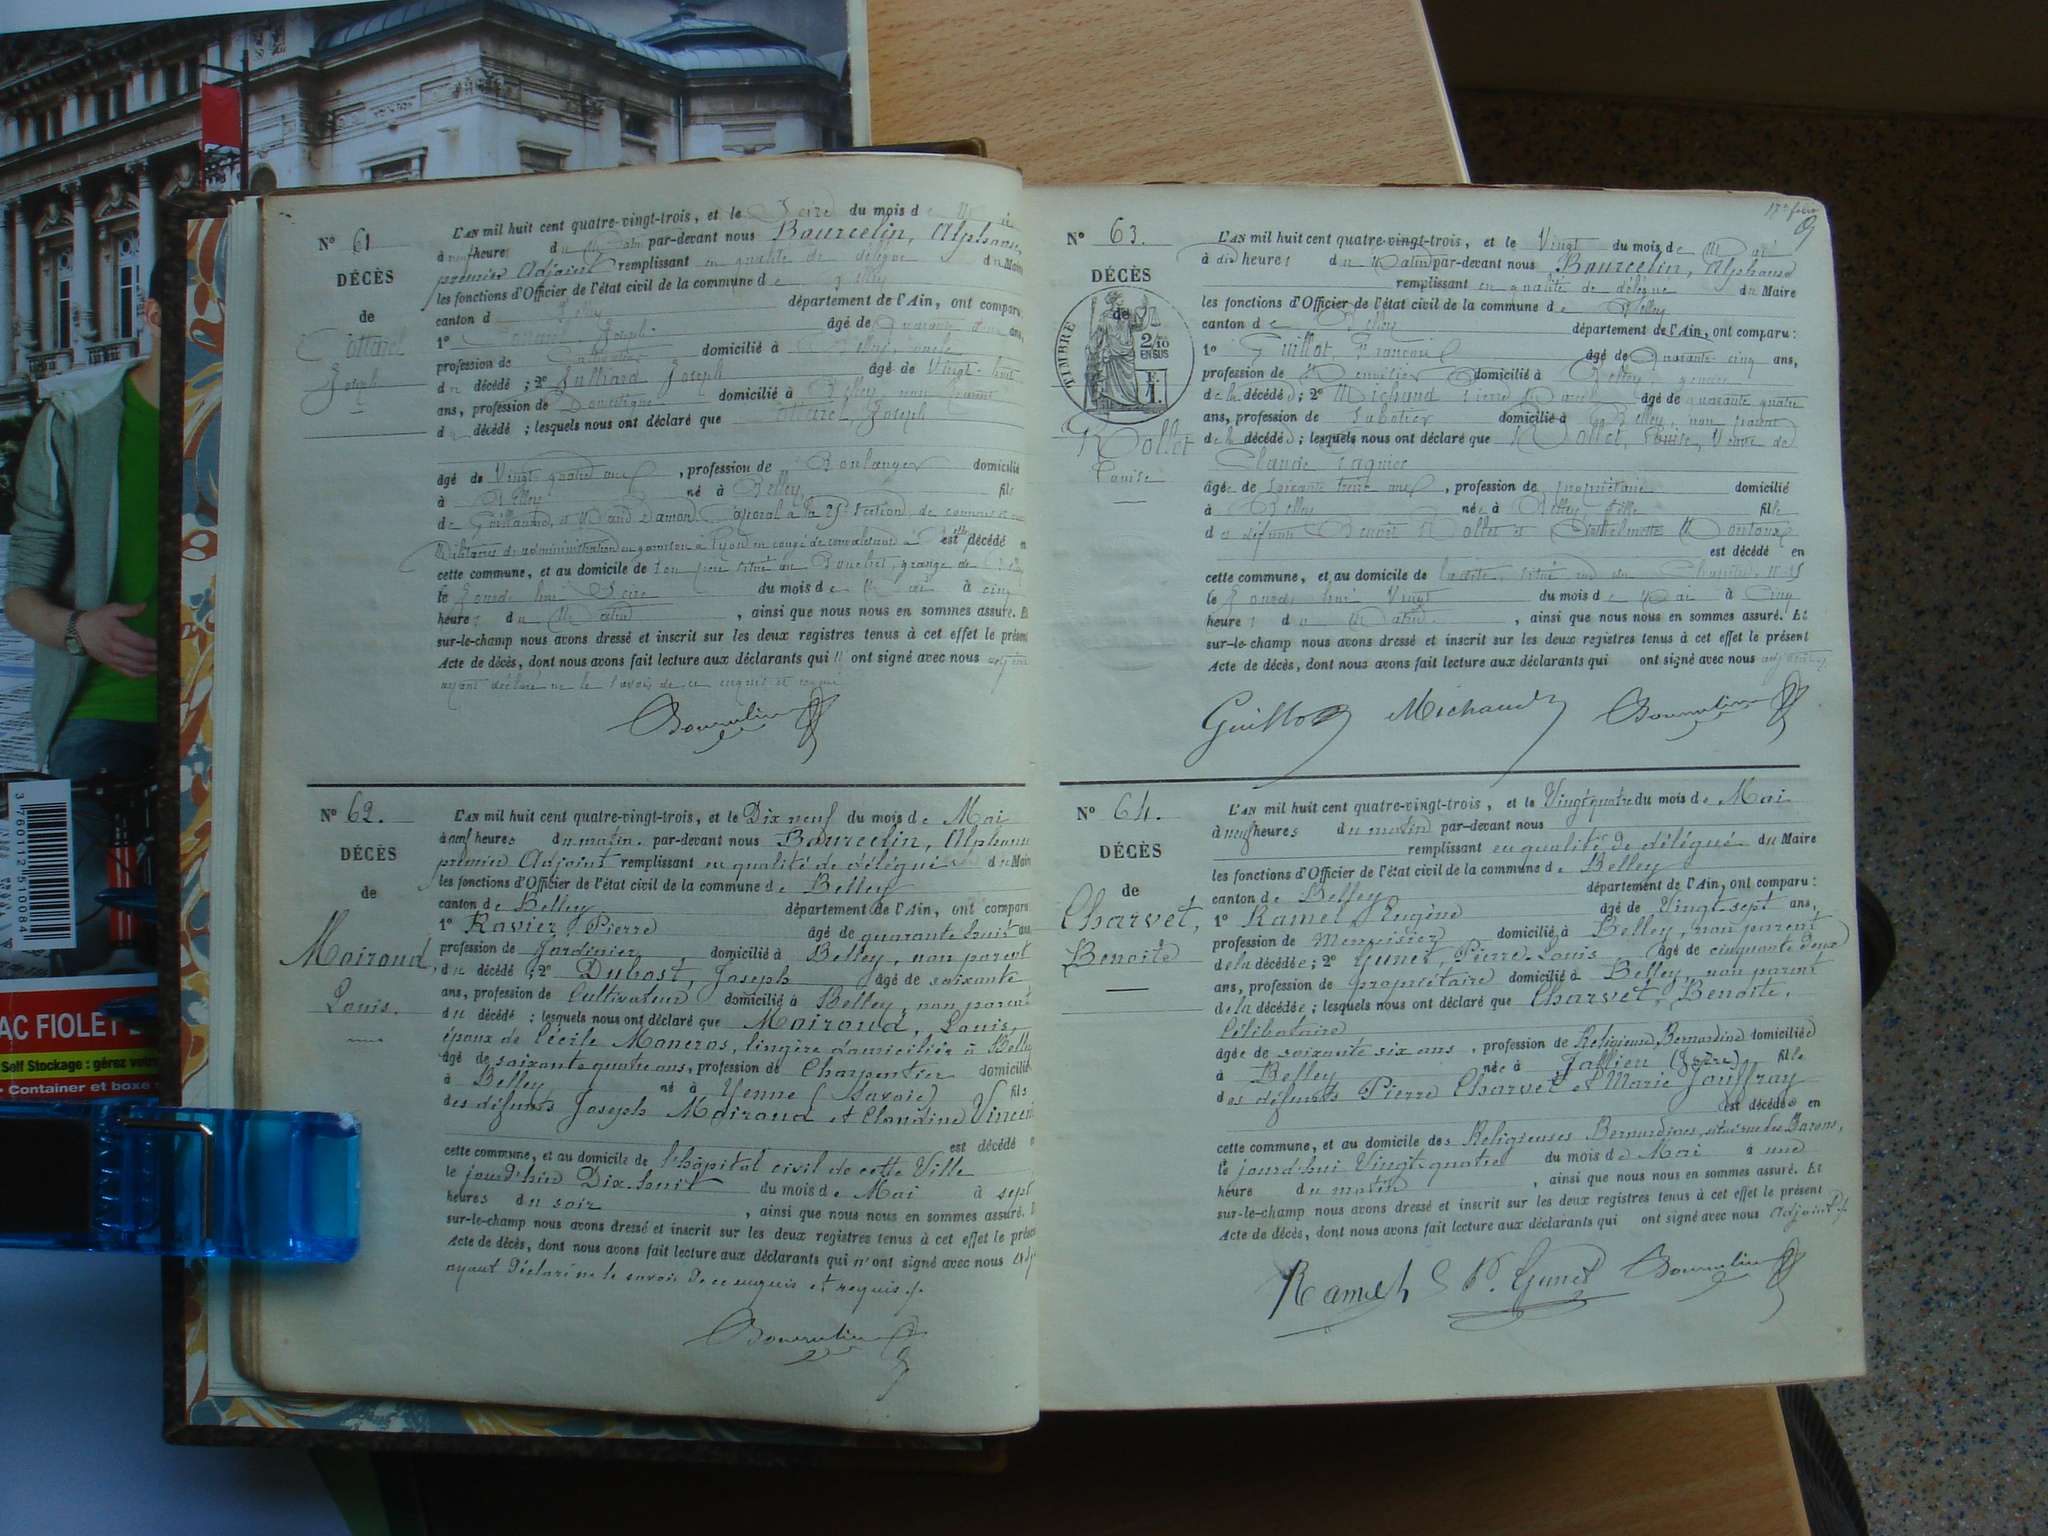 N° 61
DÉCÈS
de
Joseph
L'AN mil huit cent quatre-vingt-trois, et le Seize du mois de Mai
à neuf heures du Matin par-devant nous Bourcelin, Alphonse,
premier Adjoint remplissant en qualité de délégué du Maire
les fonctions d'Officier de l'état civil de la commune de Belley
canton de Belley département de l'Ain, ont comparu
1° Joseph âgé de quarante ans,
profession de Cultivateur domicilié à Belley, oncle
du décédé ; 2° Julliard Joseph âgé de vingt huit
ans, profession de Domestique domicilié à Belley, non parent
du décédé ; lesquels nous ont déclaré que Joseph
âgé de Vingt quatre ans, profession de Boulanger domicilié
à Belley né à Belley fils
de Guillaume et Caporal à la 25e section de commis et ouvriers
Militaires d'administration en garnison à Lyon en congé de convalescence à est décédé en
cette commune, et au domicile de son père situé au grange de
le jourd'hui Seize du mois de Mai à cinq
heures du Matin, ainsi que nous nous en sommes assuré. Et
sur-le-champ nous avons dressé et inscrit sur les deux registres tenus à cet effet le présent
Acte de décès, dont nous avons fait lecture aux déclarants qui n'ont signé avec nous adjoint
ayant déclaré ne le savoir de ce enquis et requis
Bourcelin
N° 62.
DÉCÈS
de
Moiroud,
Louis.
L'AN mil huit cent quatre-vingt-trois, et le Dix neuf du mois de Mai
à neuf heures du matin, par-devant nous Bourcelin, Alphonse
premier Adjoint remplissant en qualité de délégué du Maire
les fonctions d'Officier de l'état civil de la commune de Belley
canton de Belley département de l'Ain, ont comparu
1° Ravier, Pierre âgé de quarante huit ans
profession de Jardinier domicilié à Belley, non parent
du décédé ; 2° Dubost, Joseph âgé de soixante
ans, profession de Cultivateur domicilié à Belley, non parent
du décédé ; lesquels nous ont déclaré que Moiroud, Louis,
époux de Cécile Moneros, lingère domiciliée à Belley
âgé de soixante quatre ans, profession de Charpentier domicilié
à Belley né à Yenne (Savoie) fils
des défunts Joseph Moiroud et Claudine Vincent
est décédé en
cette commune, et au domicile de l'hôpital civil de cette Ville
le jourd'hier Dix-huit du mois de Mai à sept
heures du soir, ainsi que nous nous en sommes assuré. Et
sur-le-champ nous avons dressé et inscrit sur les deux registres tenus à cet effet le présent
Acte de décès, dont nous avons fait lecture aux déclarants qui n'ont signé avec nous Adjt
ayant déclaré ne le savoir de ce enquis et requis ./.
Bourcelin
9
N° 63.
DÉCÈS
de
TIMBRE
2/10
EN SUS
F.
1.
Rollet
Louise
L'AN mil huit cent quatre-vingt-trois, et le Vingt du mois de Mai
à dix heures du Matin par-devant nous Bourcelin, Alphonse
remplissant en qualité de délégué du Maire
les fonctions d'Officier de l'état civil de la commune de Belley
canton de Belley département de l'Ain, ont comparu :
1° Guillot, François âgé de quarante cinq ans,
profession de domicilié à Belley, gendre
de la décédée ; 2° Michaud Pierre âgé de quarante quatre
ans, profession de Sabotier domicilié à Belley, non parent
de la décédée ; lesquels nous ont déclaré que Rollet, Louise, Veuve de
Claude
âgée de soixante treize ans, profession de propriétaire domiciliée
à Belley née à Belley fille
des défunts Benoit Rollet et Anthelmette
est décédée en
cette commune, et au domicile de situé rue du
le jourd'hui Vingt du mois de Mai à Cinq
heures du Matin, ainsi que nous nous en sommes assuré. Et
sur-le-champ nous avons dressé et inscrit sur les deux registres tenus à cet effet le présent
Acte de décès, dont nous avons fait lecture aux déclarants qui ont signé avec nous adjoint
Guillot Michaud Bourcelin
N° 64.
DÉCÈS
de
Charvet,
Benoite
L'AN mil huit cent quatre-vingt-trois, et le Vingt quatre du mois de Mai
à neuf heures du matin par-devant nous
remplissant en qualité de délégué du Maire
les fonctions d'Officier de l'état civil de la commune de Belley
canton de Belley département de l'Ain, ont comparu :
1° Ramel Eugène âgé de Vingt sept ans,
profession de Menuisier domicilié à Belley, non parent
de la décédée ; 2° Gunet, Pierre Louis âgé de cinquante deux
ans, profession de propriétaire domicilié à Belley, non parent
de la décédée ; lesquels nous ont déclaré que Charvet, Benoite,
Célibataire
âgée de soixante six ans, profession de Religieuse Bernardine domiciliée
à Belley née à Jallien (Isère) fille
des défunts Pierre Charvet et Marie Jouffray
est décédée en
cette commune, et au domicile des Religieuses Bernardines, situé rue des Barons,
le jourd'hui Vingt-quatre du mois de Mai à une
heure du matin, ainsi que nous nous en sommes assuré. Et
sur-le-champ nous avons dressé et inscrit sur les deux registres tenus à cet effet le présent
Acte de décès, dont nous avons fait lecture aux déclarants qui ont signé avec nous Adjoint ./.
Ramel E P. Gunet Bourcelin
3 760112 510084
AC FIOLET
Self Stockage : gérez votre
• Container et boxe